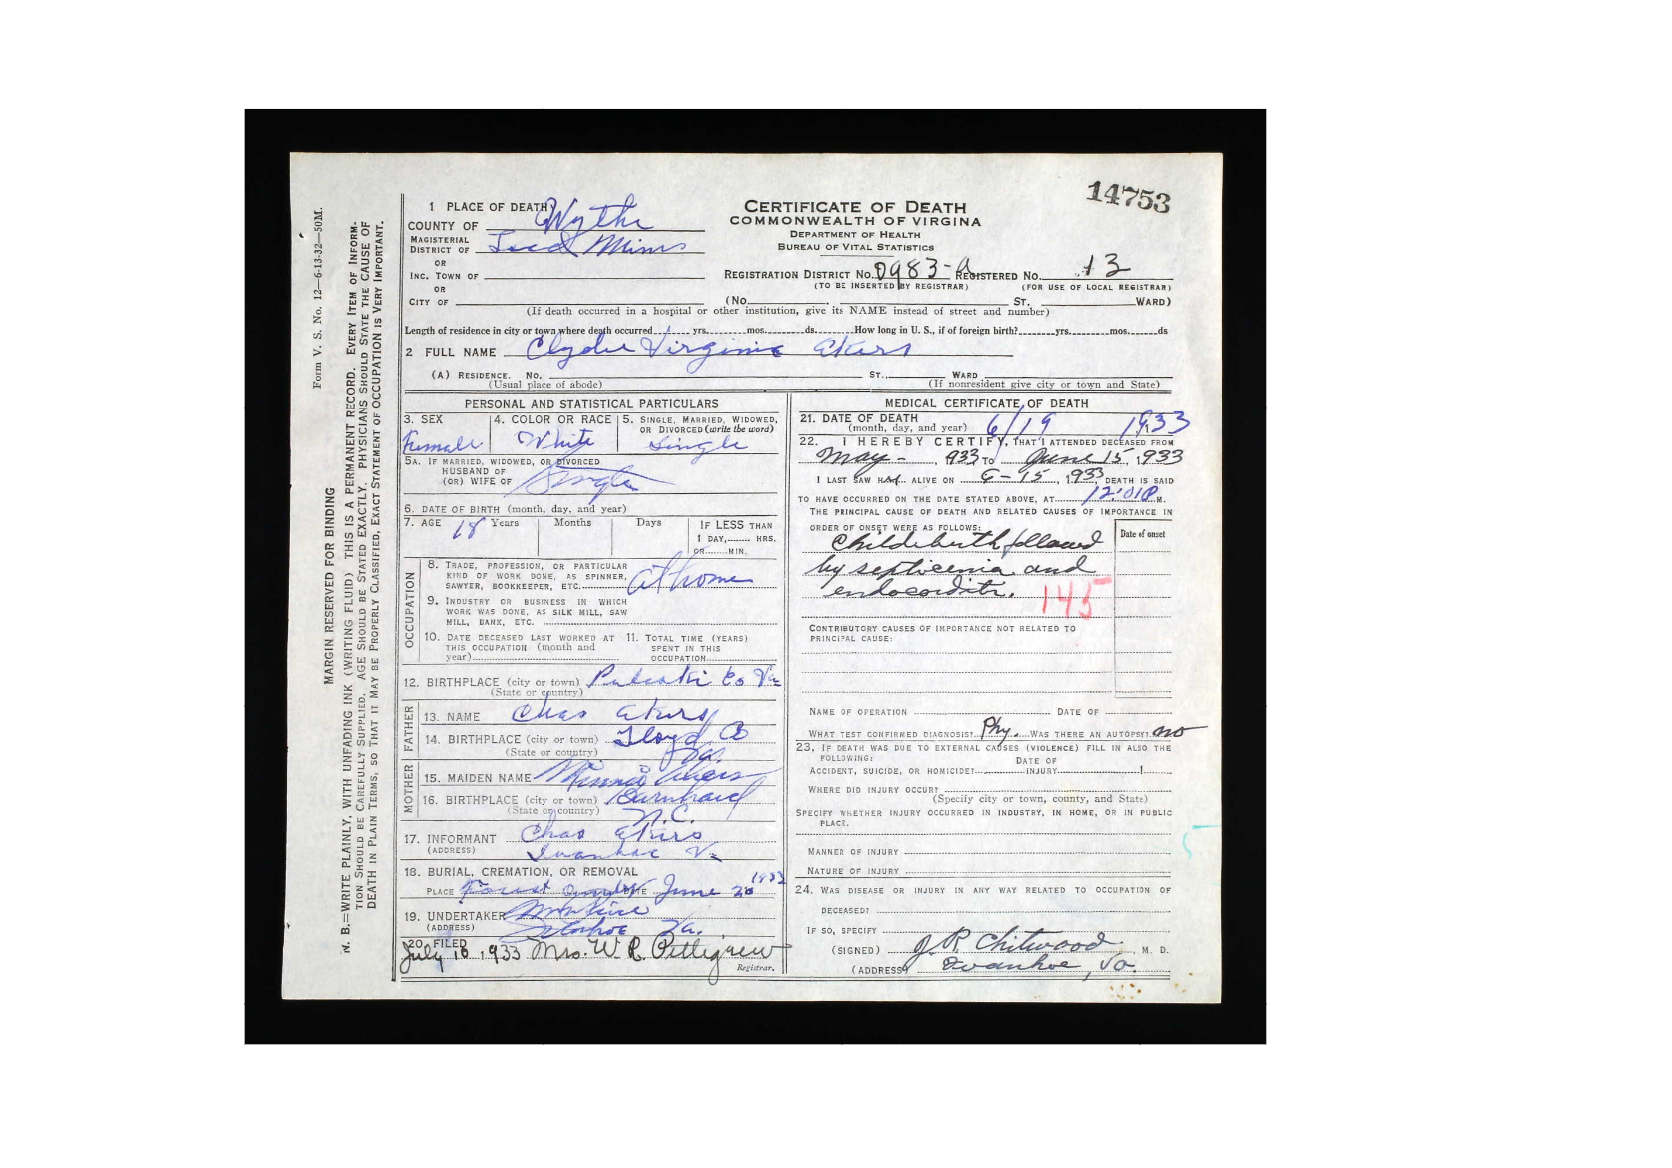 14753
Form V. S. No. 12—6-13-32—50M.
MARGIN RESERVED FOR BINDING
N. B.—WRITE PLAINLY, WITH UNFADING INK (WRITING FLUID) THIS IS A PERMANENT RECORD. EVERY ITEM OF INFORM-
TION SHOULD BE CAREFULLY SUPPLIED. AGE SHOULD BE STATED EXACTLY. PHYSICIANS SHOULD STATE THE CAUSE OF
DEATH IN PLAIN TERMS, SO THAT IT MAY BE PROPERLY CLASSIFIED. EXACT STATEMENT OF OCCUPATION IS VERY IMPORTANT.
1 PLACE OF DEATH
COUNTY OF Wythe
MAGISTERIAL
DISTRICT OF Lead Mines
OR
INC. TOWN OF
OR
CITY OF
CERTIFICATE OF DEATH
COMMONWEALTH OF VIRGINIA
DEPARTMENT OF HEALTH
BUREAU OF VITAL STATISTICS
REGISTRATION DISTRICT NO. 0983-A REGISTERED NO. 13
(TO BE INSERTED BY REGISTRAR) (FOR USE OF LOCAL REGISTRAR)
(No. ST. WARD)
(If death occurred in a hospital or other institution, give its NAME instead of street and number)
Length of residence in city or town where death occurred yrs. mos. ds. How long in U. S., if of foreign birth? yrs. mos. ds
2 FULL NAME Clydie Virginia Akers
(A) RESIDENCE. No. ST., WARD
(Usual place of abode) (If nonresident give city or town and State)
PERSONAL AND STATISTICAL PARTICULARS
3. SEX
Female
4. COLOR OR RACE
White
5. SINGLE, MARRIED, WIDOWED,
OR DIVORCED (write the word)
Single
5A. IF MARRIED, WIDOWED, OR DIVORCED
HUSBAND OF
(OR) WIFE OF Single
6. DATE OF BIRTH (month, day, and year)
7. AGE 18 Years Months Days
IF LESS THAN
1 DAY, HRS.
OR MIN.
OCCUPATION
8. TRADE, PROFESSION, OR PARTICULAR
KIND OF WORK DONE, AS SPINNER,
SAWYER, BOOKKEEPER, ETC. at home
9. INDUSTRY OR BUSINESS IN WHICH
WORK WAS DONE, AS SILK MILL, SAW
MILL, BANK, ETC.
10. DATE DECEASED LAST WORKED AT
THIS OCCUPATION (month and
year)
11. TOTAL TIME (YEARS)
SPENT IN THIS
OCCUPATION
12. BIRTHPLACE (city or town) Pulaski Co Va
(State or country)
FATHER
13. NAME Chas Akers
14. BIRTHPLACE (city or town) Floyd Co
(State or country) Va.
MOTHER
15. MAIDEN NAME Minnie Akers
16. BIRTHPLACE (city or town)
(State or country) N.C.
17. INFORMANT Chas Akers
(ADDRESS) Ivanhoe Va
18. BURIAL, CREMATION, OR REMOVAL
PLACE DATE June 20 1933
19. UNDERTAKER
(ADDRESS) Ivanhoe Va.
20. FILED
July 10 1933 Mrs. W. R. Pettigrew
Registrar.
MEDICAL CERTIFICATE OF DEATH
21. DATE OF DEATH
(month, day, and year) 6/19 1933
22. I HEREBY CERTIFY, THAT I ATTENDED DECEASED FROM
May - , 1933 TO June 15, 1933
I LAST SAW HER ALIVE ON 6-15, 1933, DEATH IS SAID
TO HAVE OCCURRED ON THE DATE STATED ABOVE, AT 12:01 P.M.
THE PRINCIPAL CAUSE OF DEATH AND RELATED CAUSES OF IMPORTANCE IN
ORDER OF ONSET WERE AS FOLLOWS:
Date of onset
Childebirth followed
by septicemia and
endocarditis.
145
CONTRIBUTORY CAUSES OF IMPORTANCE NOT RELATED TO
PRINCIPAL CAUSE:
NAME OF OPERATION DATE OF
WHAT TEST CONFIRMED DIAGNOSIS? Phy. WAS THERE AN AUTOPSY? no
23. IF DEATH WAS DUE TO EXTERNAL CAUSES (VIOLENCE) FILL IN ALSO THE
FOLLOWING: DATE OF
ACCIDENT, SUICIDE, OR HOMICIDE? INJURY
WHERE DID INJURY OCCUR?
(Specify city or town, county, and State)
SPECIFY WHETHER INJURY OCCURRED IN INDUSTRY, IN HOME, OR IN PUBLIC
PLACE.
MANNER OF INJURY
NATURE OF INJURY
24. WAS DISEASE OR INJURY IN ANY WAY RELATED TO OCCUPATION OF
DECEASED?
IF SO, SPECIFY
(SIGNED) J. R. Chitwood M. D.
(ADDRESS) Ivanhoe, Va.